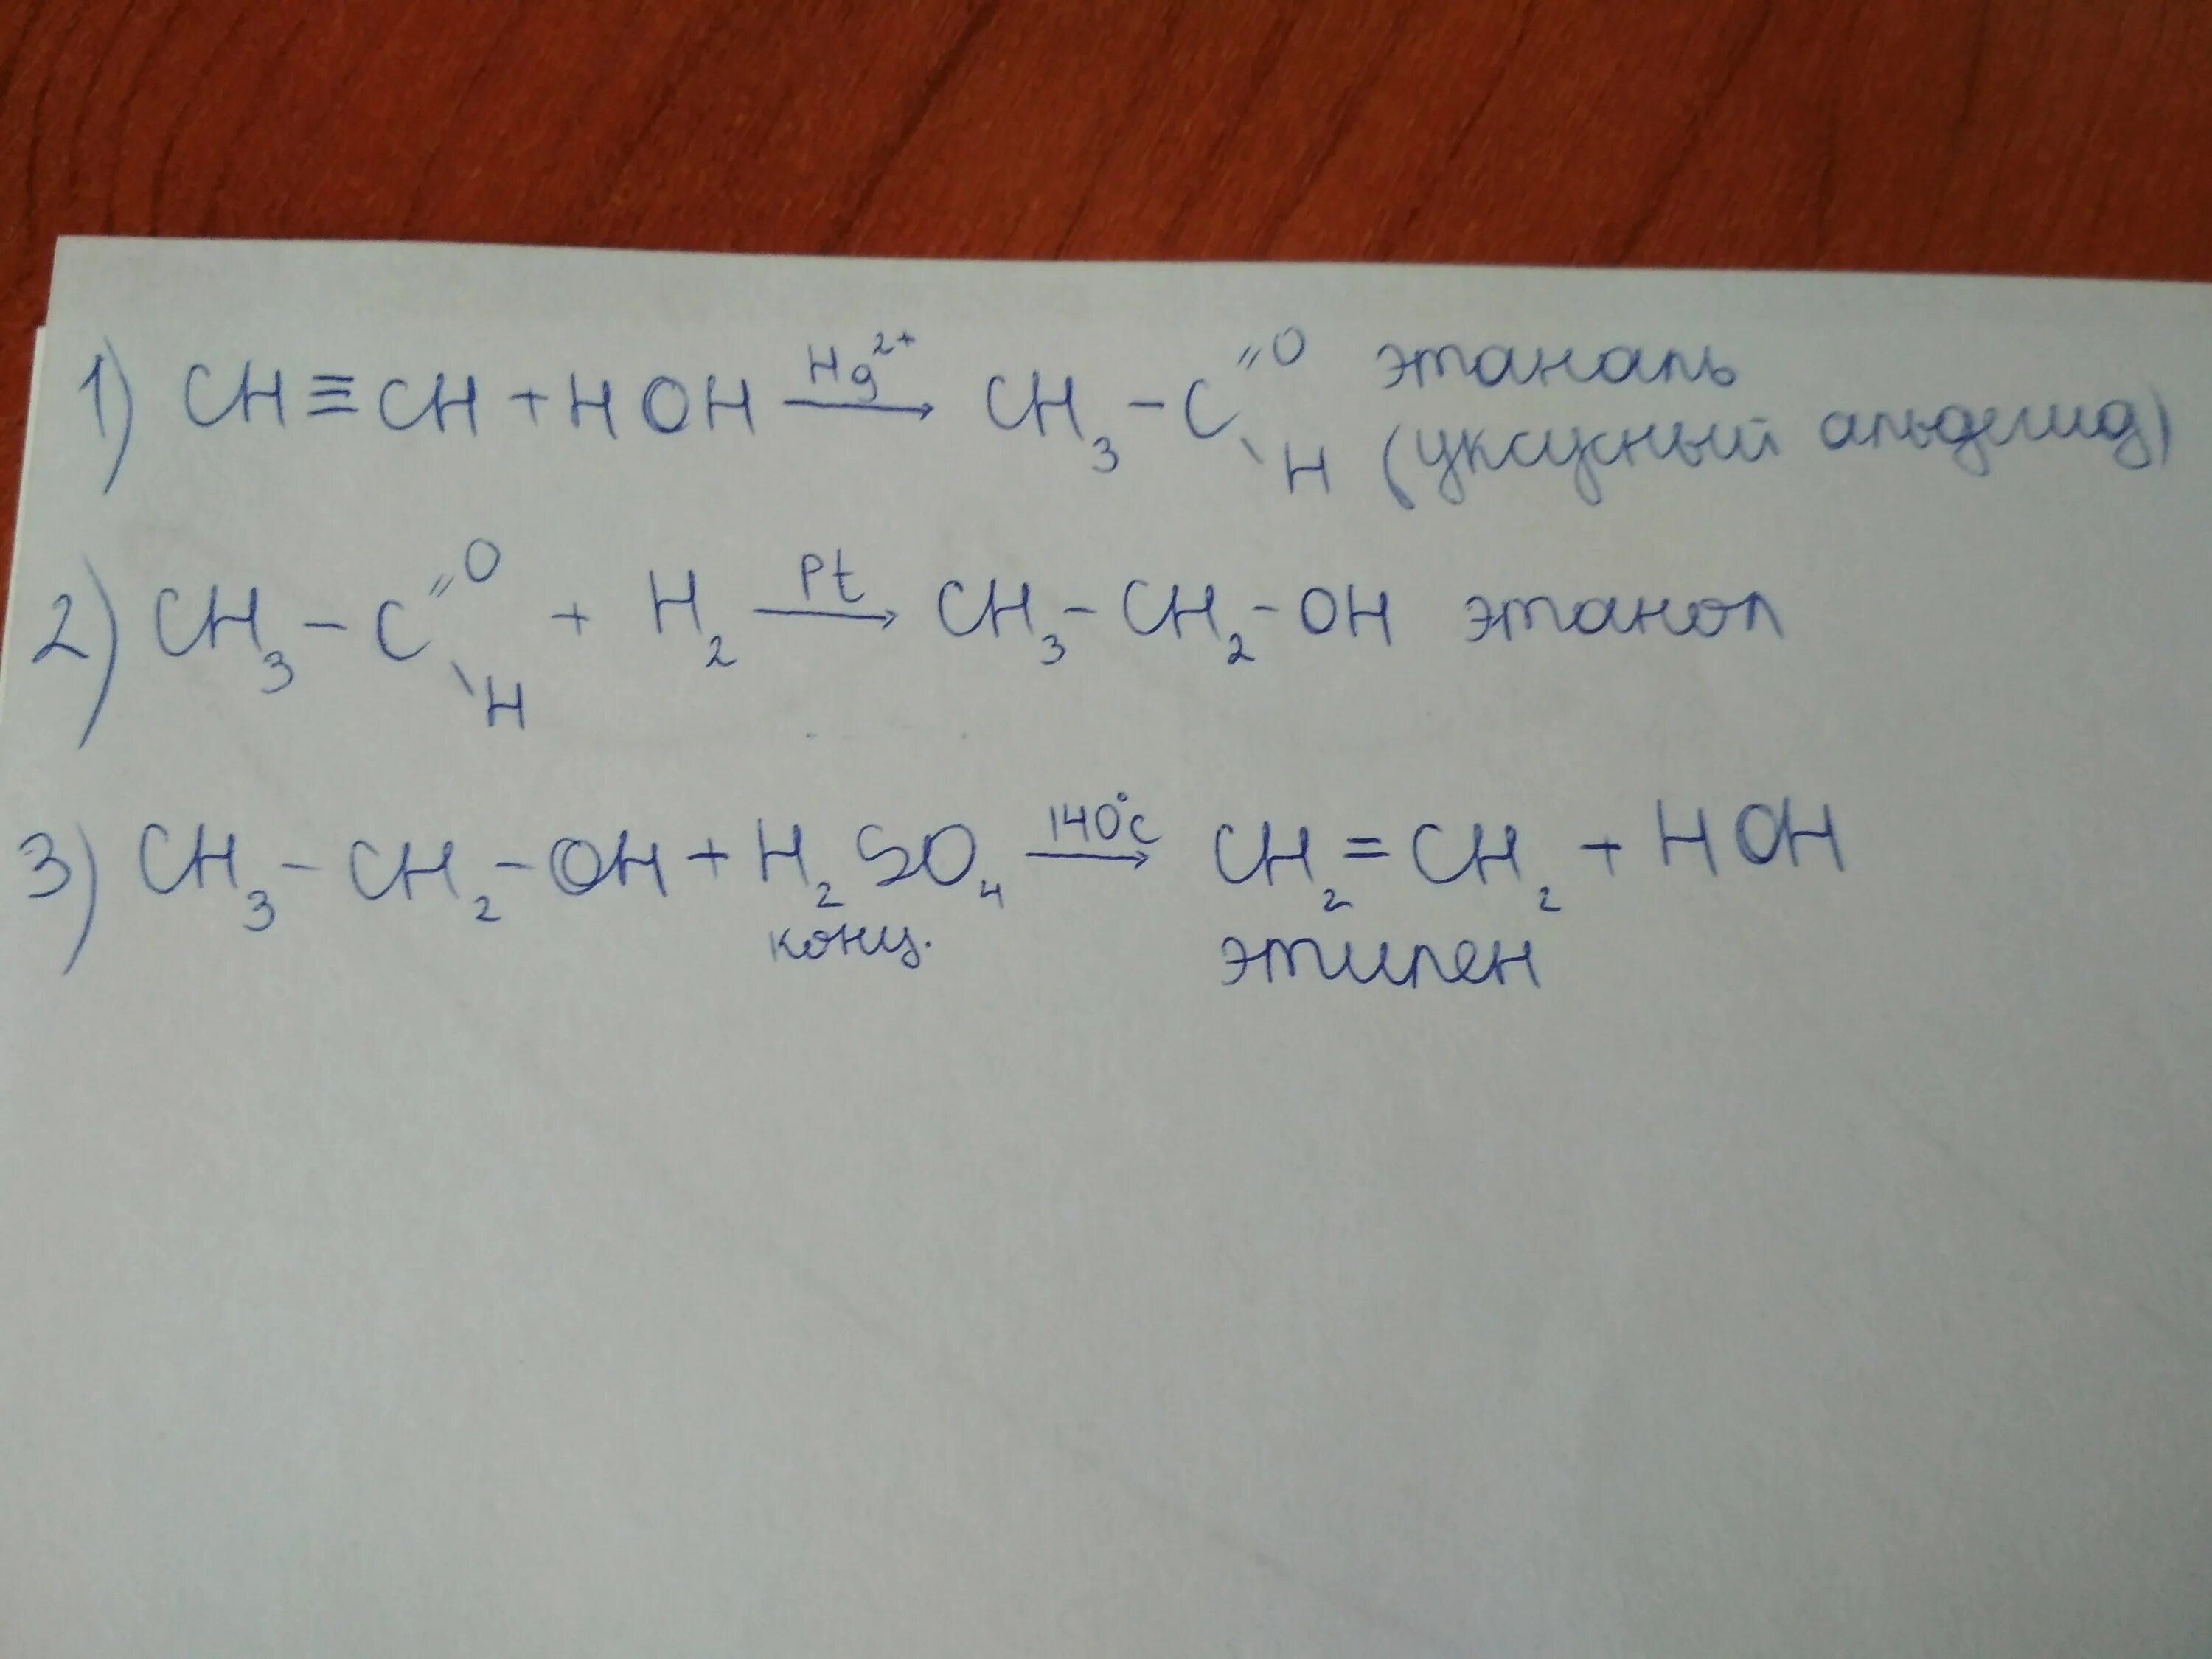 1) CH≡CH + HOH —Hg²⁺→ CH₃–C(=O)–H этаналь
(уксусный альдегид)
2) CH₃–C(=O)–H + H₂ —Pt→ CH₃–CH₂–OH этанол
3) CH₃–CH₂–OH + H₂SO₄ —140°c→ CH₂=CH₂ + HOH
конц. этилен